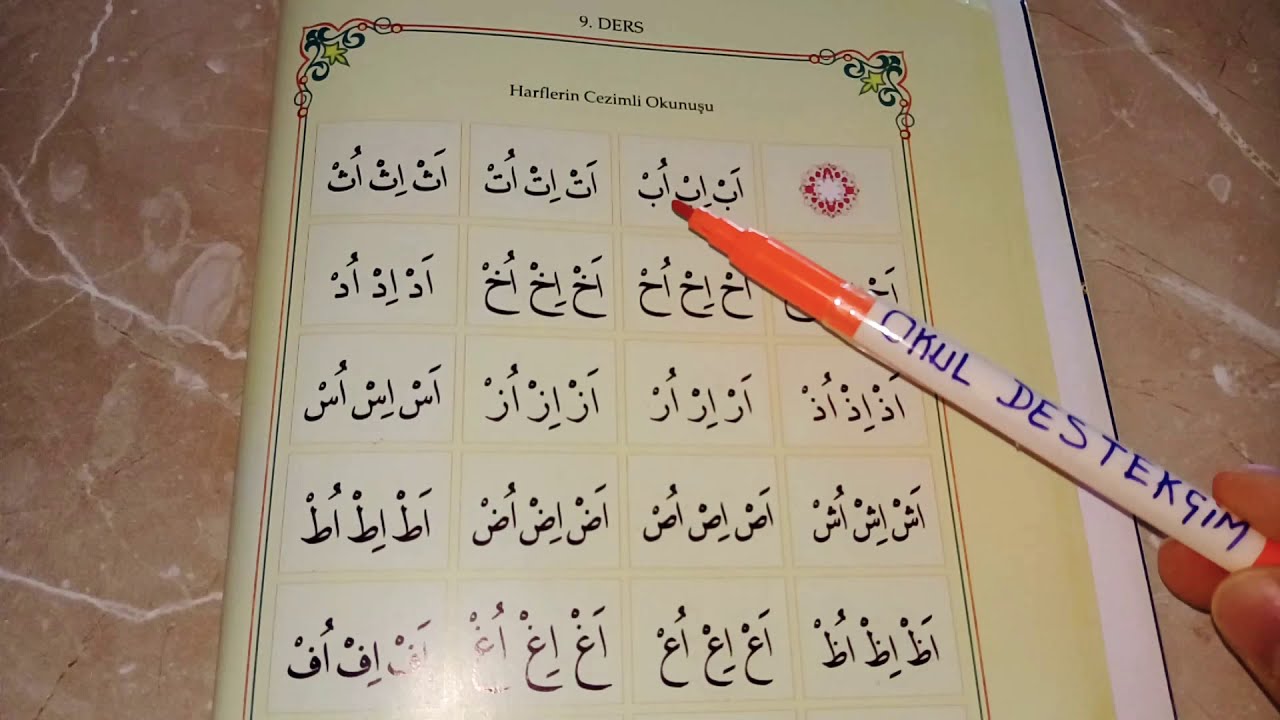 9. DERS
Harflerin Cezimli Okunuşu
اَبْ اِبْ اُبْ اَتْ اِتْ اُتْ اَثْ اِثْ اُثْ
اَحْ اِحْ اُحْ اَخْ اِخْ اُخْ اَدْ اِدْ اُدْ
اَذْ اِذْ اُذْ اَرْ اِرْ اُرْ اَزْ اِزْ اُزْ اَسْ اِسْ اُسْ
اَشْ اِشْ اُشْ اَصْ اِصْ اُصْ اَضْ اِضْ اُضْ اَطْ اِطْ اُطْ
اَظْ اِظْ اُظْ اَعْ اِعْ اُعْ اَغْ اِغْ اُغْ اَفْ اِفْ اُفْ
OKUL DESTEKÇİM